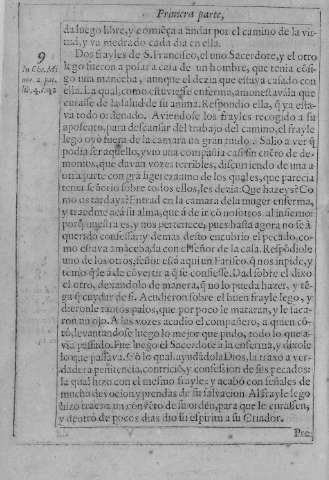 Primera parte,
da luego libre, y comiēça a andar por el camino de la vir
tud, y va medrado cada dia en ella.
9
Dos frayles de S. Francisco, el uno Sacerdote, y el otro
lego fueron a posar a casa de un hombre, que tenia cōsi-
go una manceba, aunque el dezia que estava casado con
ella. La qual como estuviesse enferma, amonestavala que
curasse de la salud de su anima. Respondio ella, q̄ ya esta
va todo ordenado. Aviendose los frayles recogido a su
aposento, para descansar del trabajo del camino, el frayle
lego oyò fuera de la camara un gran ruido. Saliò a ver q̄
podia ser aquello, y vio una de
monios, que davan vozes terribles, discurriendo de una a
otra parte con grā ligereza: a uno de los quales, que parecia
tener señorio sobre todos ellos, les dezia: Que hazeys? Co
mo os tardays? Entrad en la camara de la muger enferma,
y traedme acà su alma, que à de ir cō nosotros al infierno:
porq̄ nuestra es, y nos pertenece, pues hasta agora no se à
querido confessar, y demas desso encubrio el pecado, co-
mo estava amācebada con el señor de la casa. Respōdiole
uno de los otros, señor està aqui un q̄ nos inpide, y
temo q̄ le à de cōvertir a q̄ se confiesse. Dad sobre el dixo
el otro, dexandolo de manera, q̄ no lo pueda hazer, y tē-
ga q̄ cuydar de si. Acudieron sobre el buen frayle lego, y
dieronle tantos palos, que por poco le mataran, y le saca-
ron un ojo. A las vozes acudio el compañero, a quien cō
tò, levantandose luego lo mejor que pudo, todo lo que a-
via passado. Fue luego el Sacerdote a la enferma, y dixole
lo que passava. Cō lo qual, ayudādola Dios, la traxo a ver-
dadera penitencia, contricio, y confession de sus pecados:
la qual hizo con el mesmo frayle: y acabò con señales de
mucha devocion, y prendas de su salvacion. Al frayle lego
hizo traer a un convēto de su ordē, para que le curassen,
y dentro de pocos dias dio su espiritu a su Criador.
Pre-